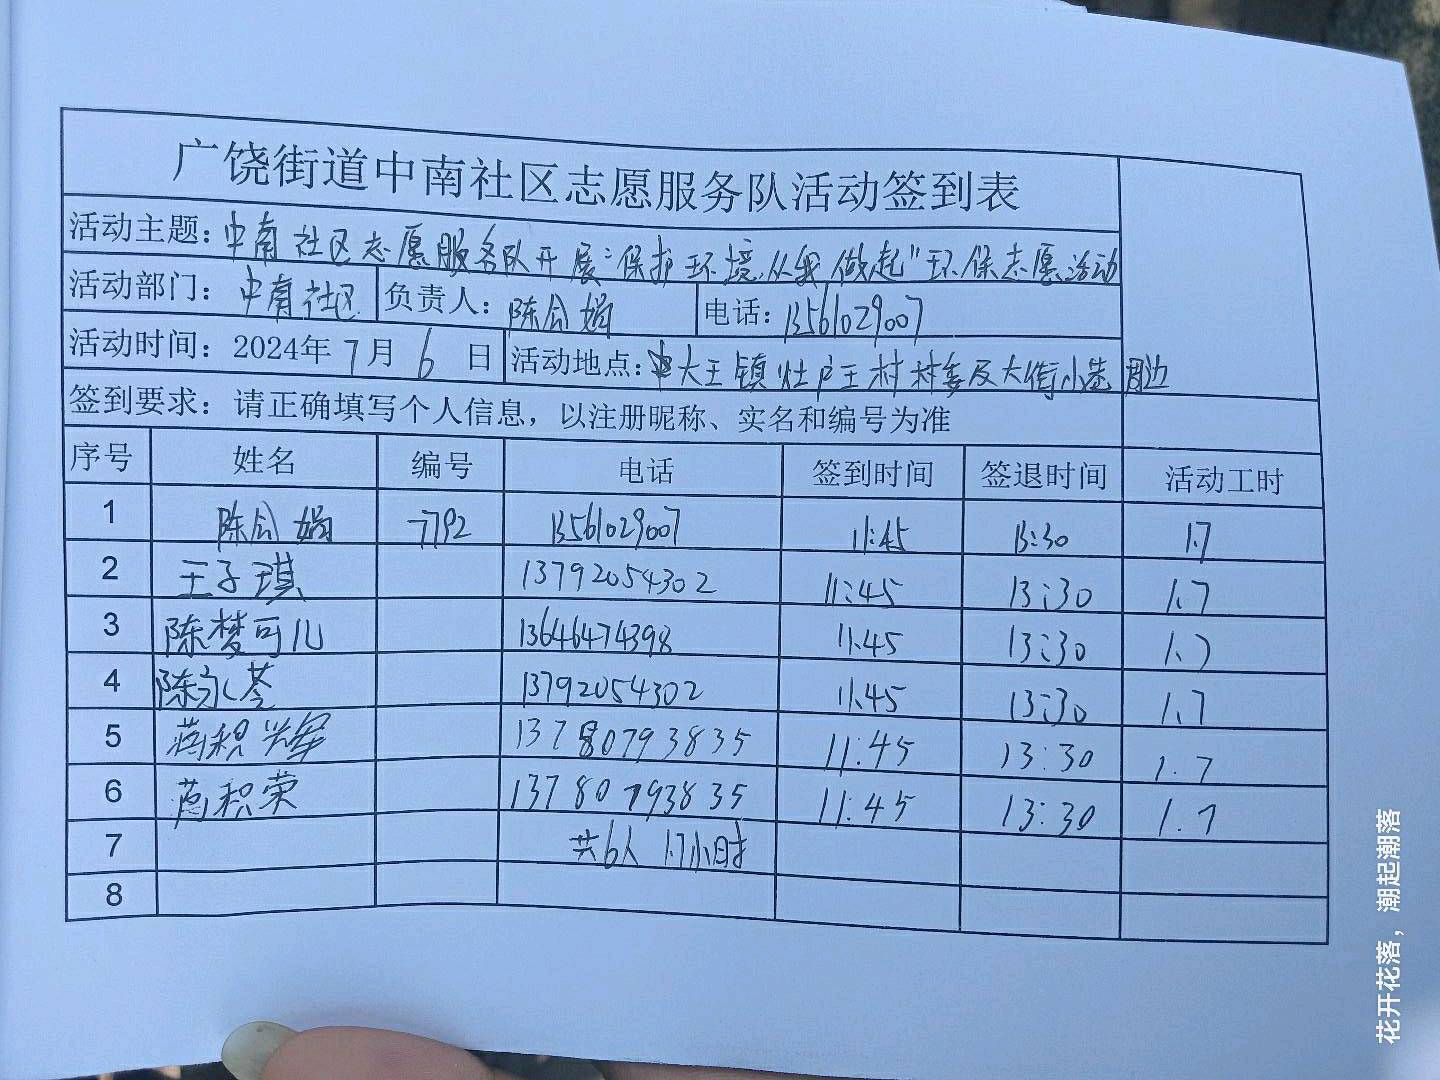 广饶街道中南社区志愿服务队活动签到表
活动主题：中南社区志愿服务队开展"保护环境,从我做起"环保志愿活动
活动部门：中南社区 负责人：陈会娟 电话：13561029007
活动时间：2024年7月6日 活动地点：大王镇灶户王村村委及大街小巷周边
签到要求：请正确填写个人信息，以注册昵称、实名和编号为准
序号 姓名 编号 电话 签到时间 签退时间 活动工时
1 陈会娟 7792 13561029007 11:45 13:30 1.7
2 王子琪 13792054302 11:45 13:30 1.7
3 陈梦可儿 13646474398 11:45 13:30 1.7
4 陈永芩 13792054302 11:45 13:30 1.7
5 积辉 13780793835 11:45 13:30 1.7
6 积荣 13780793835 11:45 13:30 1.7
7 共6人 1.7小时
8
花开花落，潮起潮落